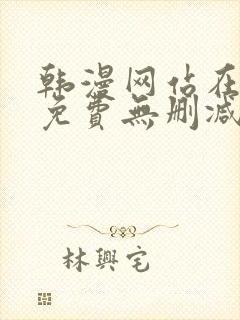 韩漫网站在
免費無删减
林興宅